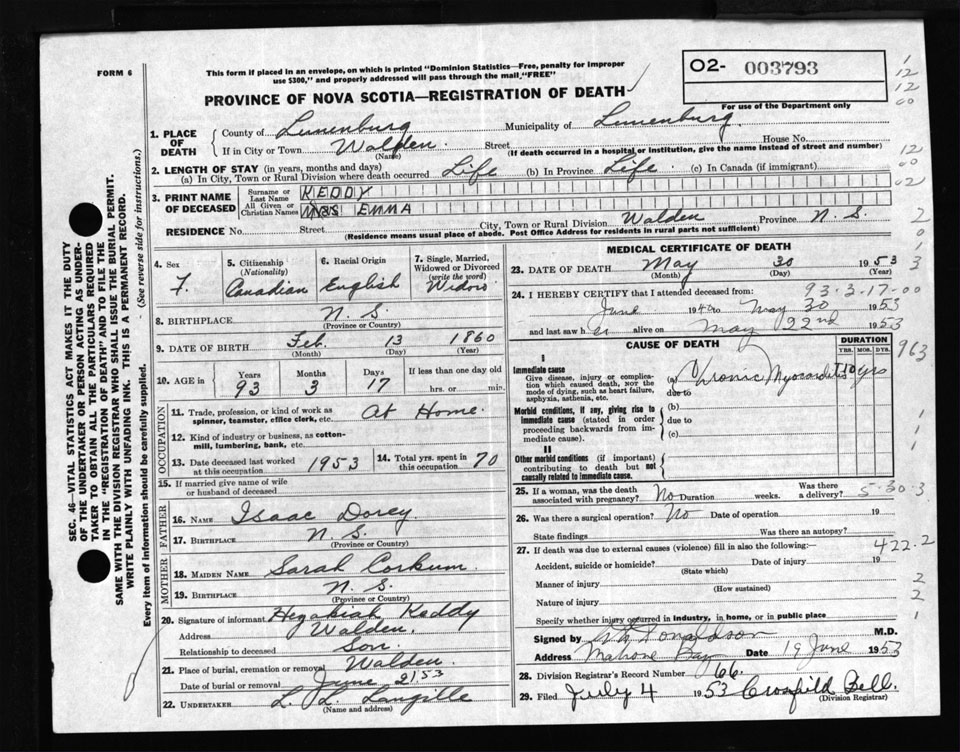 FORM 6
This form if placed in an envelope, on which is printed "Dominion Statistics—Free, penalty for improper
use $300," and properly addressed will pass through the mail, "FREE"
O2- 003793
For use of the Department only
PROVINCE OF NOVA SCOTIA—REGISTRATION OF DEATH
SEC. 46—VITAL STATISTICS ACT MAKES IT THE DUTY
OF THE UNDERTAKER OR PERSON ACTING AS UNDER-
TAKER TO OBTAIN ALL THE PARTICULARS REQUIRED
IN THE "REGISTRATION OF DEATH" AND TO FILE THE
SAME WITH THE DIVISION REGISTRAR WHO SHALL ISSUE THE BURIAL PERMIT.
WRITE PLAINLY WITH UNFADING INK. THIS IS A PERMANENT RECORD.
Every item of information should be carefully supplied. (See reverse side for instructions.)
1. PLACE OF DEATH County of Lunenburg Municipality of Lunenburg
If in City or Town Walden Street House No.
(Name) (If death occurred in a hospital or institution, give the name instead of street and number)
2. LENGTH OF STAY (in years, months and days)
(a) In City, Town or Rural Division where death occurred Life (b) In Province Life (c) In Canada (if immigrant)
3. PRINT NAME OF DECEASED Surname or Last Name KEDDY
All Given or Christian Names MRS EMMA
RESIDENCE No. Street City, Town or Rural Division Walden Province N. S.
(Residence means usual place of abode. Post Office Address for residents in rural parts not sufficient)
4. Sex F.
5. Citizenship (Nationality) Canadian
6. Racial Origin English
7. Single, Married, Widowed or Divorced (write the word) Widow
8. BIRTHPLACE N. S.
(Province or Country)
9. DATE OF BIRTH Feb. 13 1860
(Month) (Day) (Year)
10. AGE in Years 93 Months 3 Days 17 If less than one day old hrs. or min.
OCCUPATION
11. Trade, profession, or kind of work as spinner, teamster, office clerk, etc. At Home.
12. Kind of industry or business, as cotton-mill, lumbering, bank, etc.
13. Date deceased last worked at this occupation 1953 14. Total yrs. spent in this occupation 70
15. If married give name of wife or husband of deceased
FATHER
16. NAME Isaac Dorey
17. BIRTHPLACE N. S.
(Province or Country)
MOTHER
18. MAIDEN NAME Sarah Corkum
19. BIRTHPLACE N. S.
(Province or Country)
20. Signature of informant Hezakiah Keddy
Address Walden.
Relationship to deceased Son.
21. Place of burial, cremation or removal Walden
Date of burial or removal June 2/53
22. UNDERTAKER L. L. Langille
(Name and address)
MEDICAL CERTIFICATE OF DEATH
23. DATE OF DEATH May 30 1953
(Month) (Day) (Year)
93-3-17-00
24. I HEREBY CERTIFY that I attended deceased from:
June 1940 to May 30 1953
and last saw her alive on May 22nd 1953
CAUSE OF DEATH
DURATION
YRS. MOS. DYS.
963
I
Immediate cause
Give disease, injury or complication which caused death, NOT the mode of dying, such as heart failure, asphyxia, asthenia, etc.
(a) Chronic Myocarditis 10 yrs
due to
Morbid conditions, if any, giving rise to immediate cause (stated in order proceeding backwards from immediate cause).
(b)
due to
(c)
II
Other morbid conditions (if important) contributing to death but not causally related to immediate cause.
25. If a woman, was the death associated with pregnancy? No Duration weeks. Was there a delivery?
5-30-3
26. Was there a surgical operation? No Date of operation 19
State findings Was there an autopsy?
27. If death was due to external causes (violence) fill in also the following:—
422.2
Accident, suicide or homicide? Date of injury 19
(State which)
Manner of injury
(How sustained)
Nature of injury
Specify whether injury occurred in industry, in home, or in public place
Signed by Donaldson M.D.
Address Mahone Bay Date 19 June 1953
28. Division Registrar's Record Number 66
29. Filed July 4 1953 Crossfield Bell.
(Division Registrar)